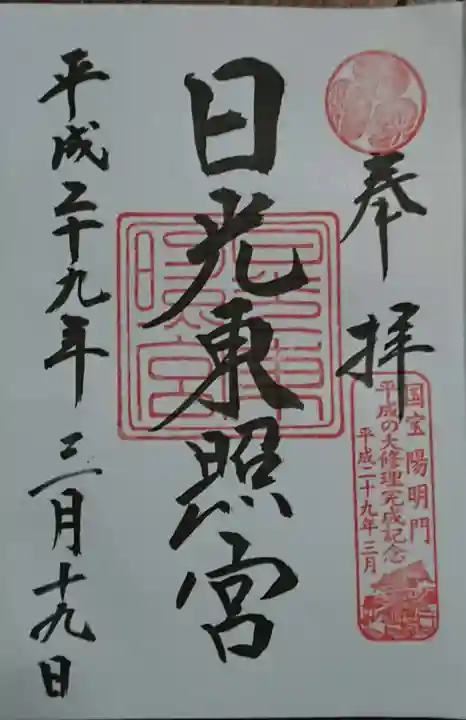 奉拝
国宝陽明門
平成の大修理完成記念
平成二十九年三月
日光東照宮
平成二十九年三月十九日